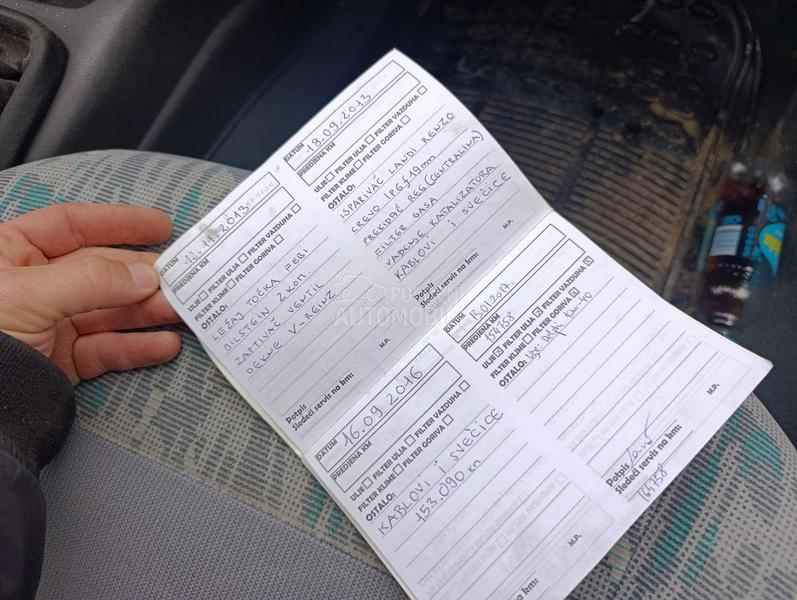 DATUM 18.09.2013
PREĐENA KM
ULJE FILTER ULJA FILTER VAZDUHA
FILTER KLIME FILTER GORIVA
OSTALO:
ISPARIVAČ LANDI RENZO
CREVO IPG ƒ19mm
PREKIDAČ REG (CENTRALINA)
FILTER GASA
VAĐENJE KATALIZATORA
KABLOVI I SVEĆICE
M.P.
Potpis
Sledeći servis na km:
DATUM 12.11.2013
PREĐENA KM
ULJE FILTER ULJA FILTER VAZDUHA
FILTER KLIME FILTER GORIVA
OSTALO:
LEŽAJ TOČKA FEBI
BILSTEIN 2 KOM.
ZAPTIVAČ VENTIL
DEKNE V-REINZ
M.P.
Potpis
Sledeći servis na km:
POLOVNI
AUTOMOBILI
DATUM 2017.
PREĐENA KM 154758
ULJE FILTER ULJA FILTER VAZDUHA
FILTER KLIME FILTER GORIVA
OSTALO: Ulje: Delphi 10w-40
M.P.
Potpis
Sledeći servis na km:
164758
DATUM 16.09.2016
PREĐENA KM
ULJE FILTER ULJA FILTER VAZDUHA
FILTER KLIME FILTER GORIVA
OSTALO:
KABLOVI I SVEĆICE
153.090 km
M.P.
na km: